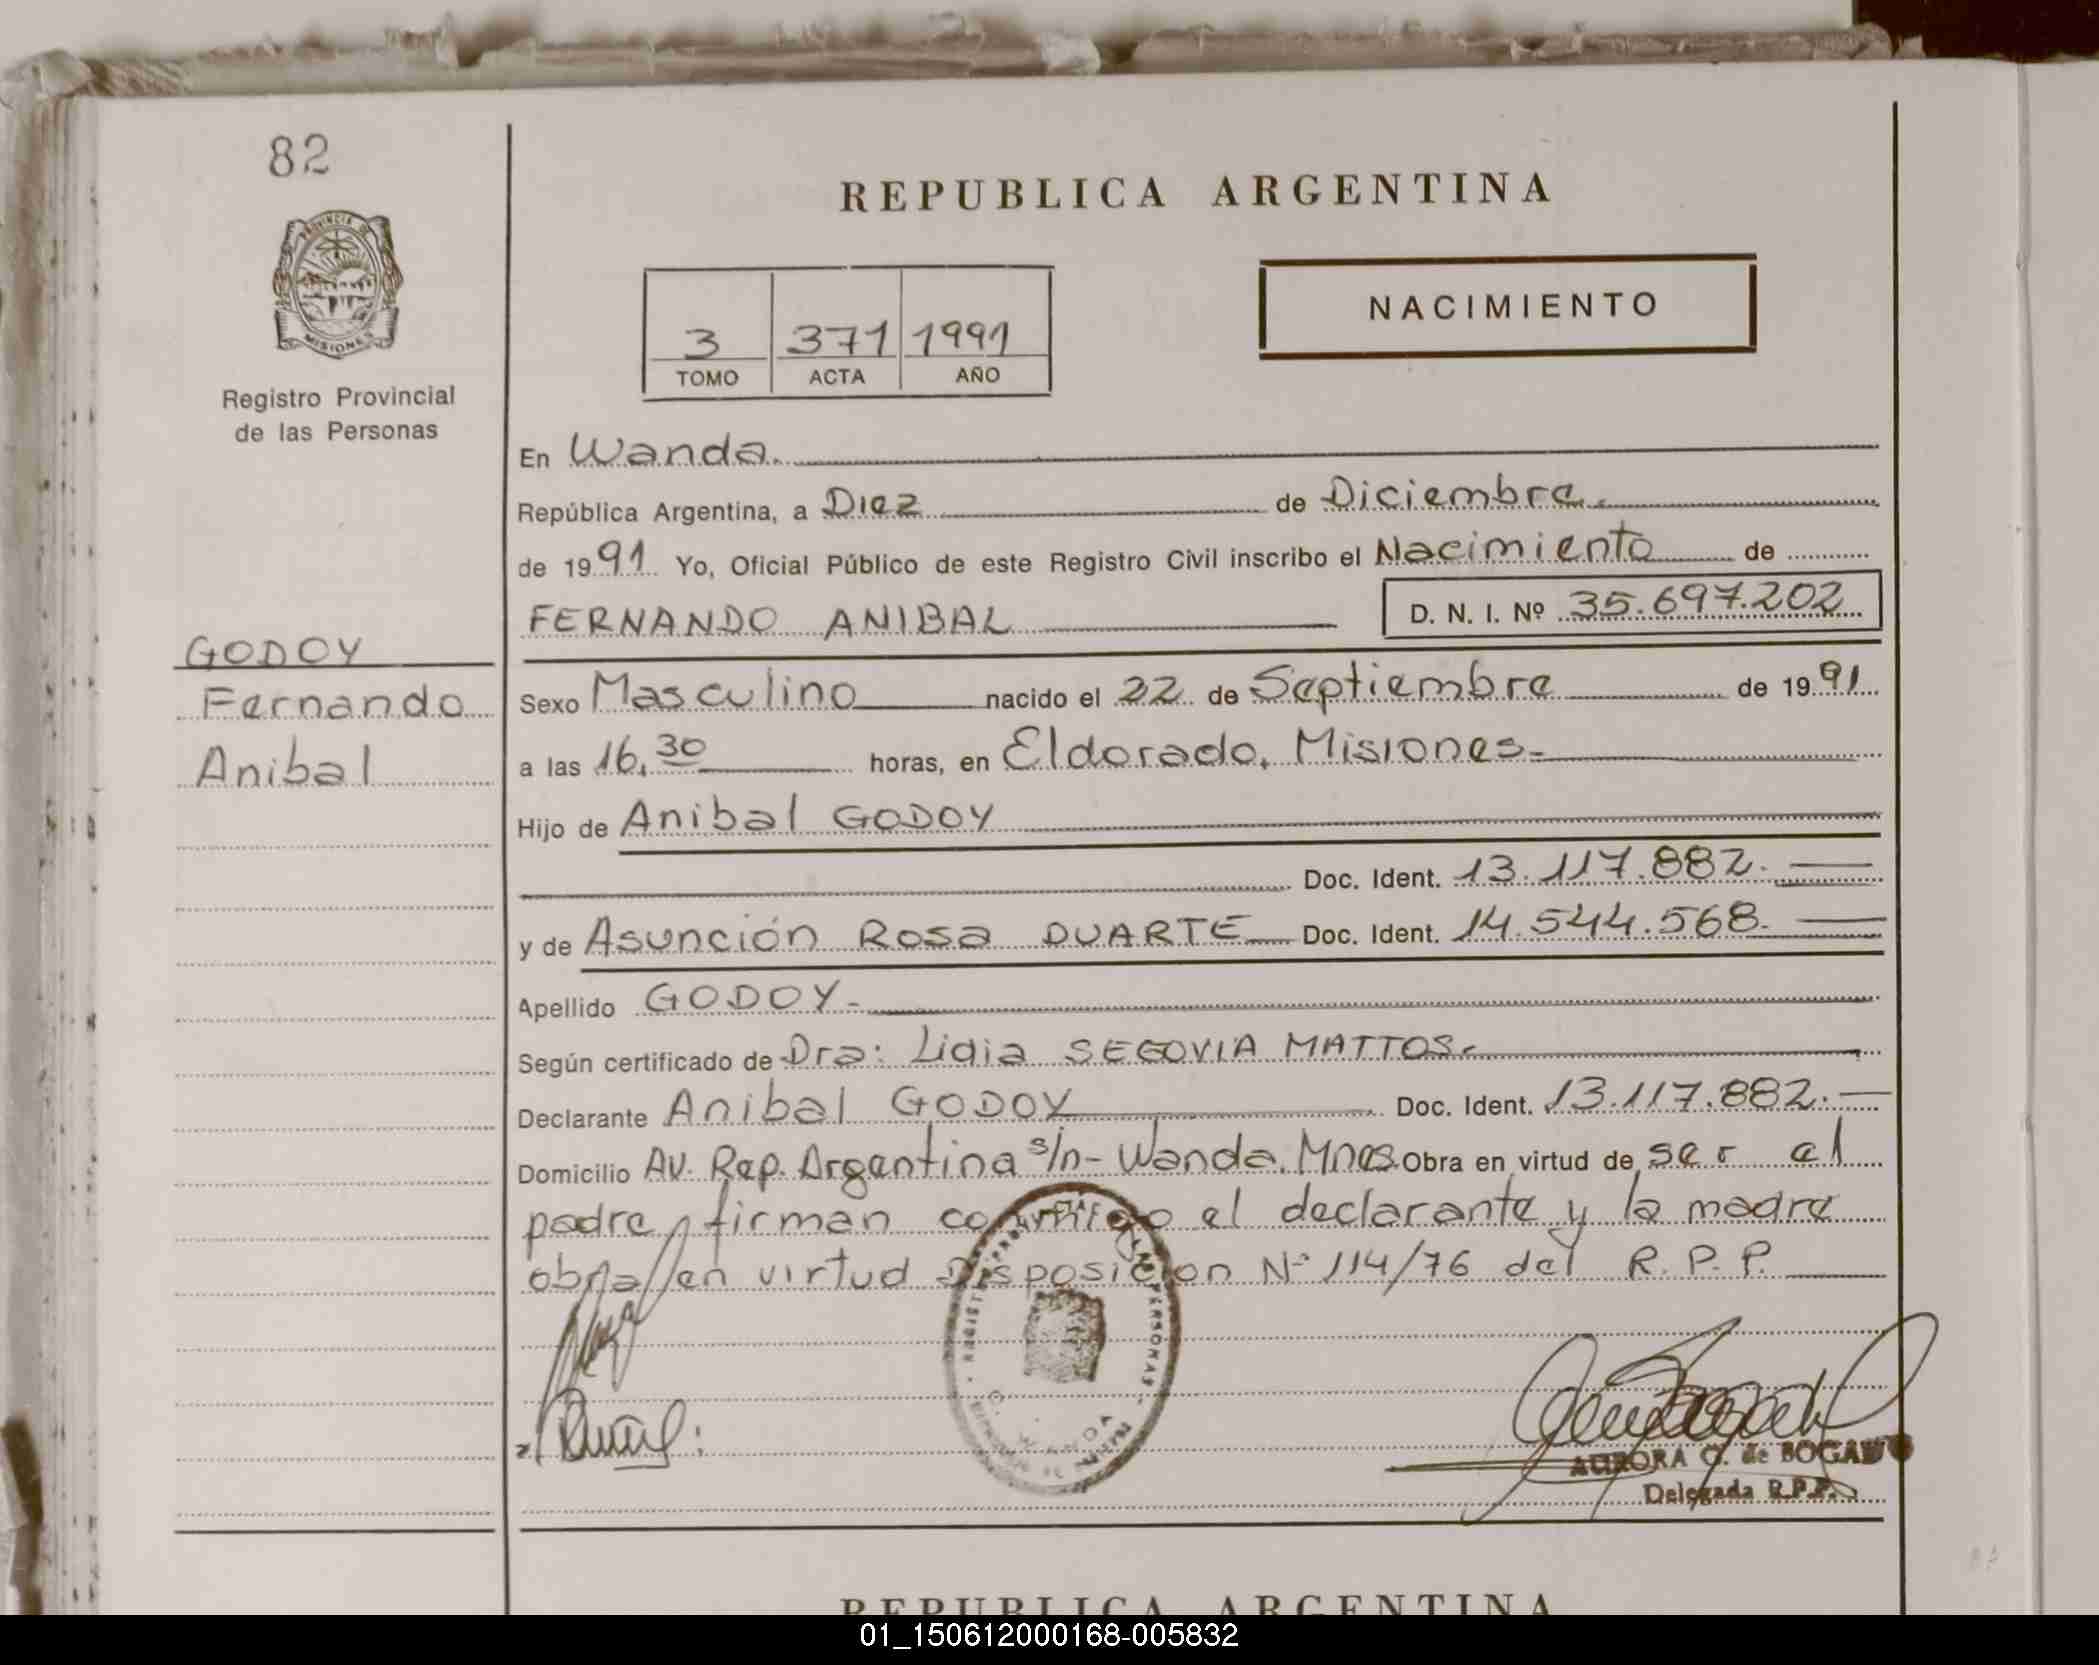 82
REPUBLICA ARGENTINA
PROVINCIA DE
MISIONES
Registro Provincial
de las Personas
3 371 1991
TOMO ACTA AÑO
NACIMIENTO
En Wanda.
República Argentina, a Diez de Diciembre.
de 1991 Yo, Oficial Público de este Registro Civil inscribo el Nacimiento de
FERNANDO ANIBAL D. N. I. Nº 35.697.202
GODOY
Fernando
Anibal
Sexo Masculino nacido el 22 de Septiembre de 1991
a las 16,30 horas, en Eldorado, Misiones=
Hijo de Anibal GODOY
Doc. Ident. 13.117.882.
y de Asunción Rosa DUARTE Doc. Ident. 14.544.568.
Apellido GODOY-
Según certificado de Dra: Lidia SEGOVIA MATTOS.
Declarante Anibal GODOY Doc. Ident. 13.117.882.-
Domicilio Av. Rep. Argentina s/n- Wanda. Mnes Obra en virtud de ser el
padre, firman conmigo el declarante y la madre
obra en virtud Disposición Nº 114/76 del R. P. P.
AURORA G. de BOGADO
Delegada R.P.P.
REPUBLICA ARGENTINA
01_150612000168-005832